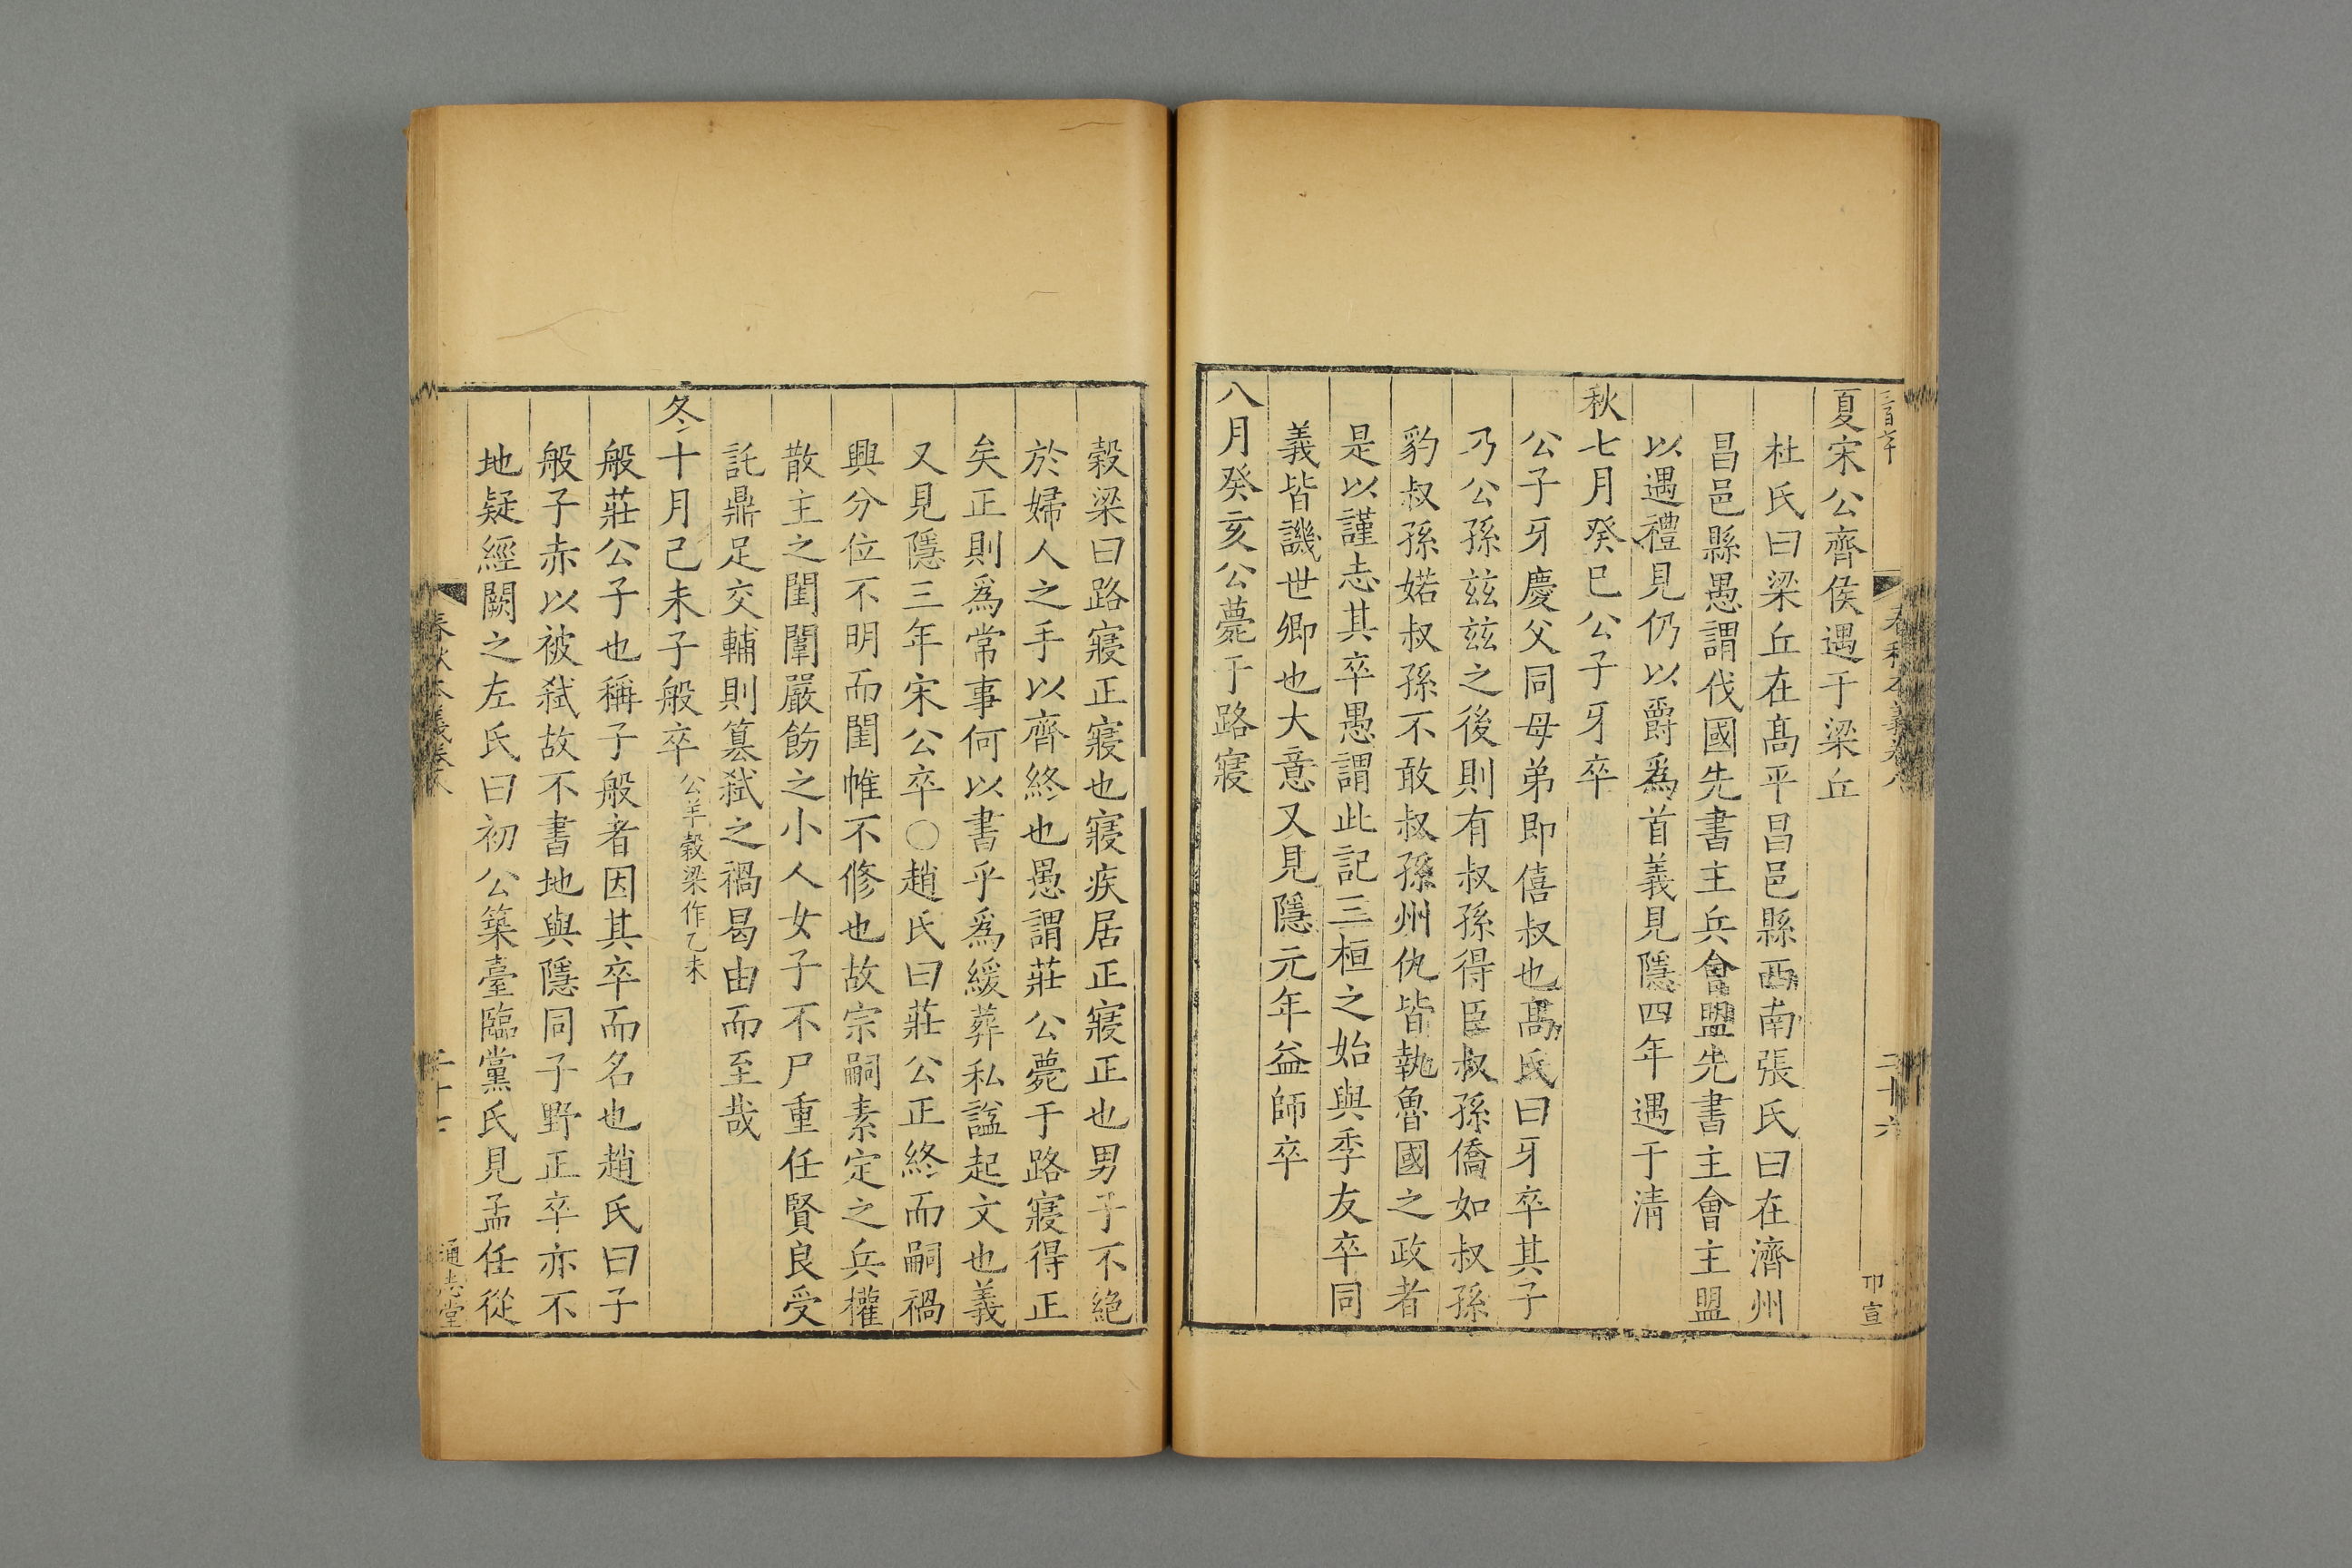 夏宋公齊侯遇于梁丘
杜氏曰梁丘在髙平昌邑縣西南張氏曰在濟州
昌邑縣愚謂伐國先書主兵會盟先書主會主盟
以遇禮見仍以爵爲首義見隱四年遇于清
秋七月癸巳公子牙卒
公子牙慶父同母弟即僖叔也髙氏曰牙卒其子
乃公孫兹兹之後則有叔孫得臣叔孫僑如叔孫
豹叔孫婼叔孫不敢叔孫州仇皆執魯國之政者
是以謹志其卒愚謂此記三桓之始與季友卒同
義皆譏世卿也大意又見隱元年益師卒
八月癸亥公薨于路寢
穀梁曰路寢正寢也寢疾居正寢正也男子不絶
於婦人之手以齊終也愚謂莊公薨于路寢得正
矣正則爲常事何以書乎爲緩葬私諡起文也義
又見隱三年宋公卒○趙氏曰莊公正終而嗣禍
興分位不明而閨帷不修也故宗嗣素定之兵權
散主之閨闈嚴飭之小人女子不尸重任賢良受
託鼎足交輔則篡弑之禍曷由而至哉
冬十月己未子般卒公羊穀梁作乙未
般莊公子也稱子般者因其卒而名也趙氏曰子
般子赤以被弑故不書地與隱同子野正卒亦不
地疑經闕之左氏曰初公築臺臨黨氏見孟任從
春秋本義卷八
二十六
通志堂